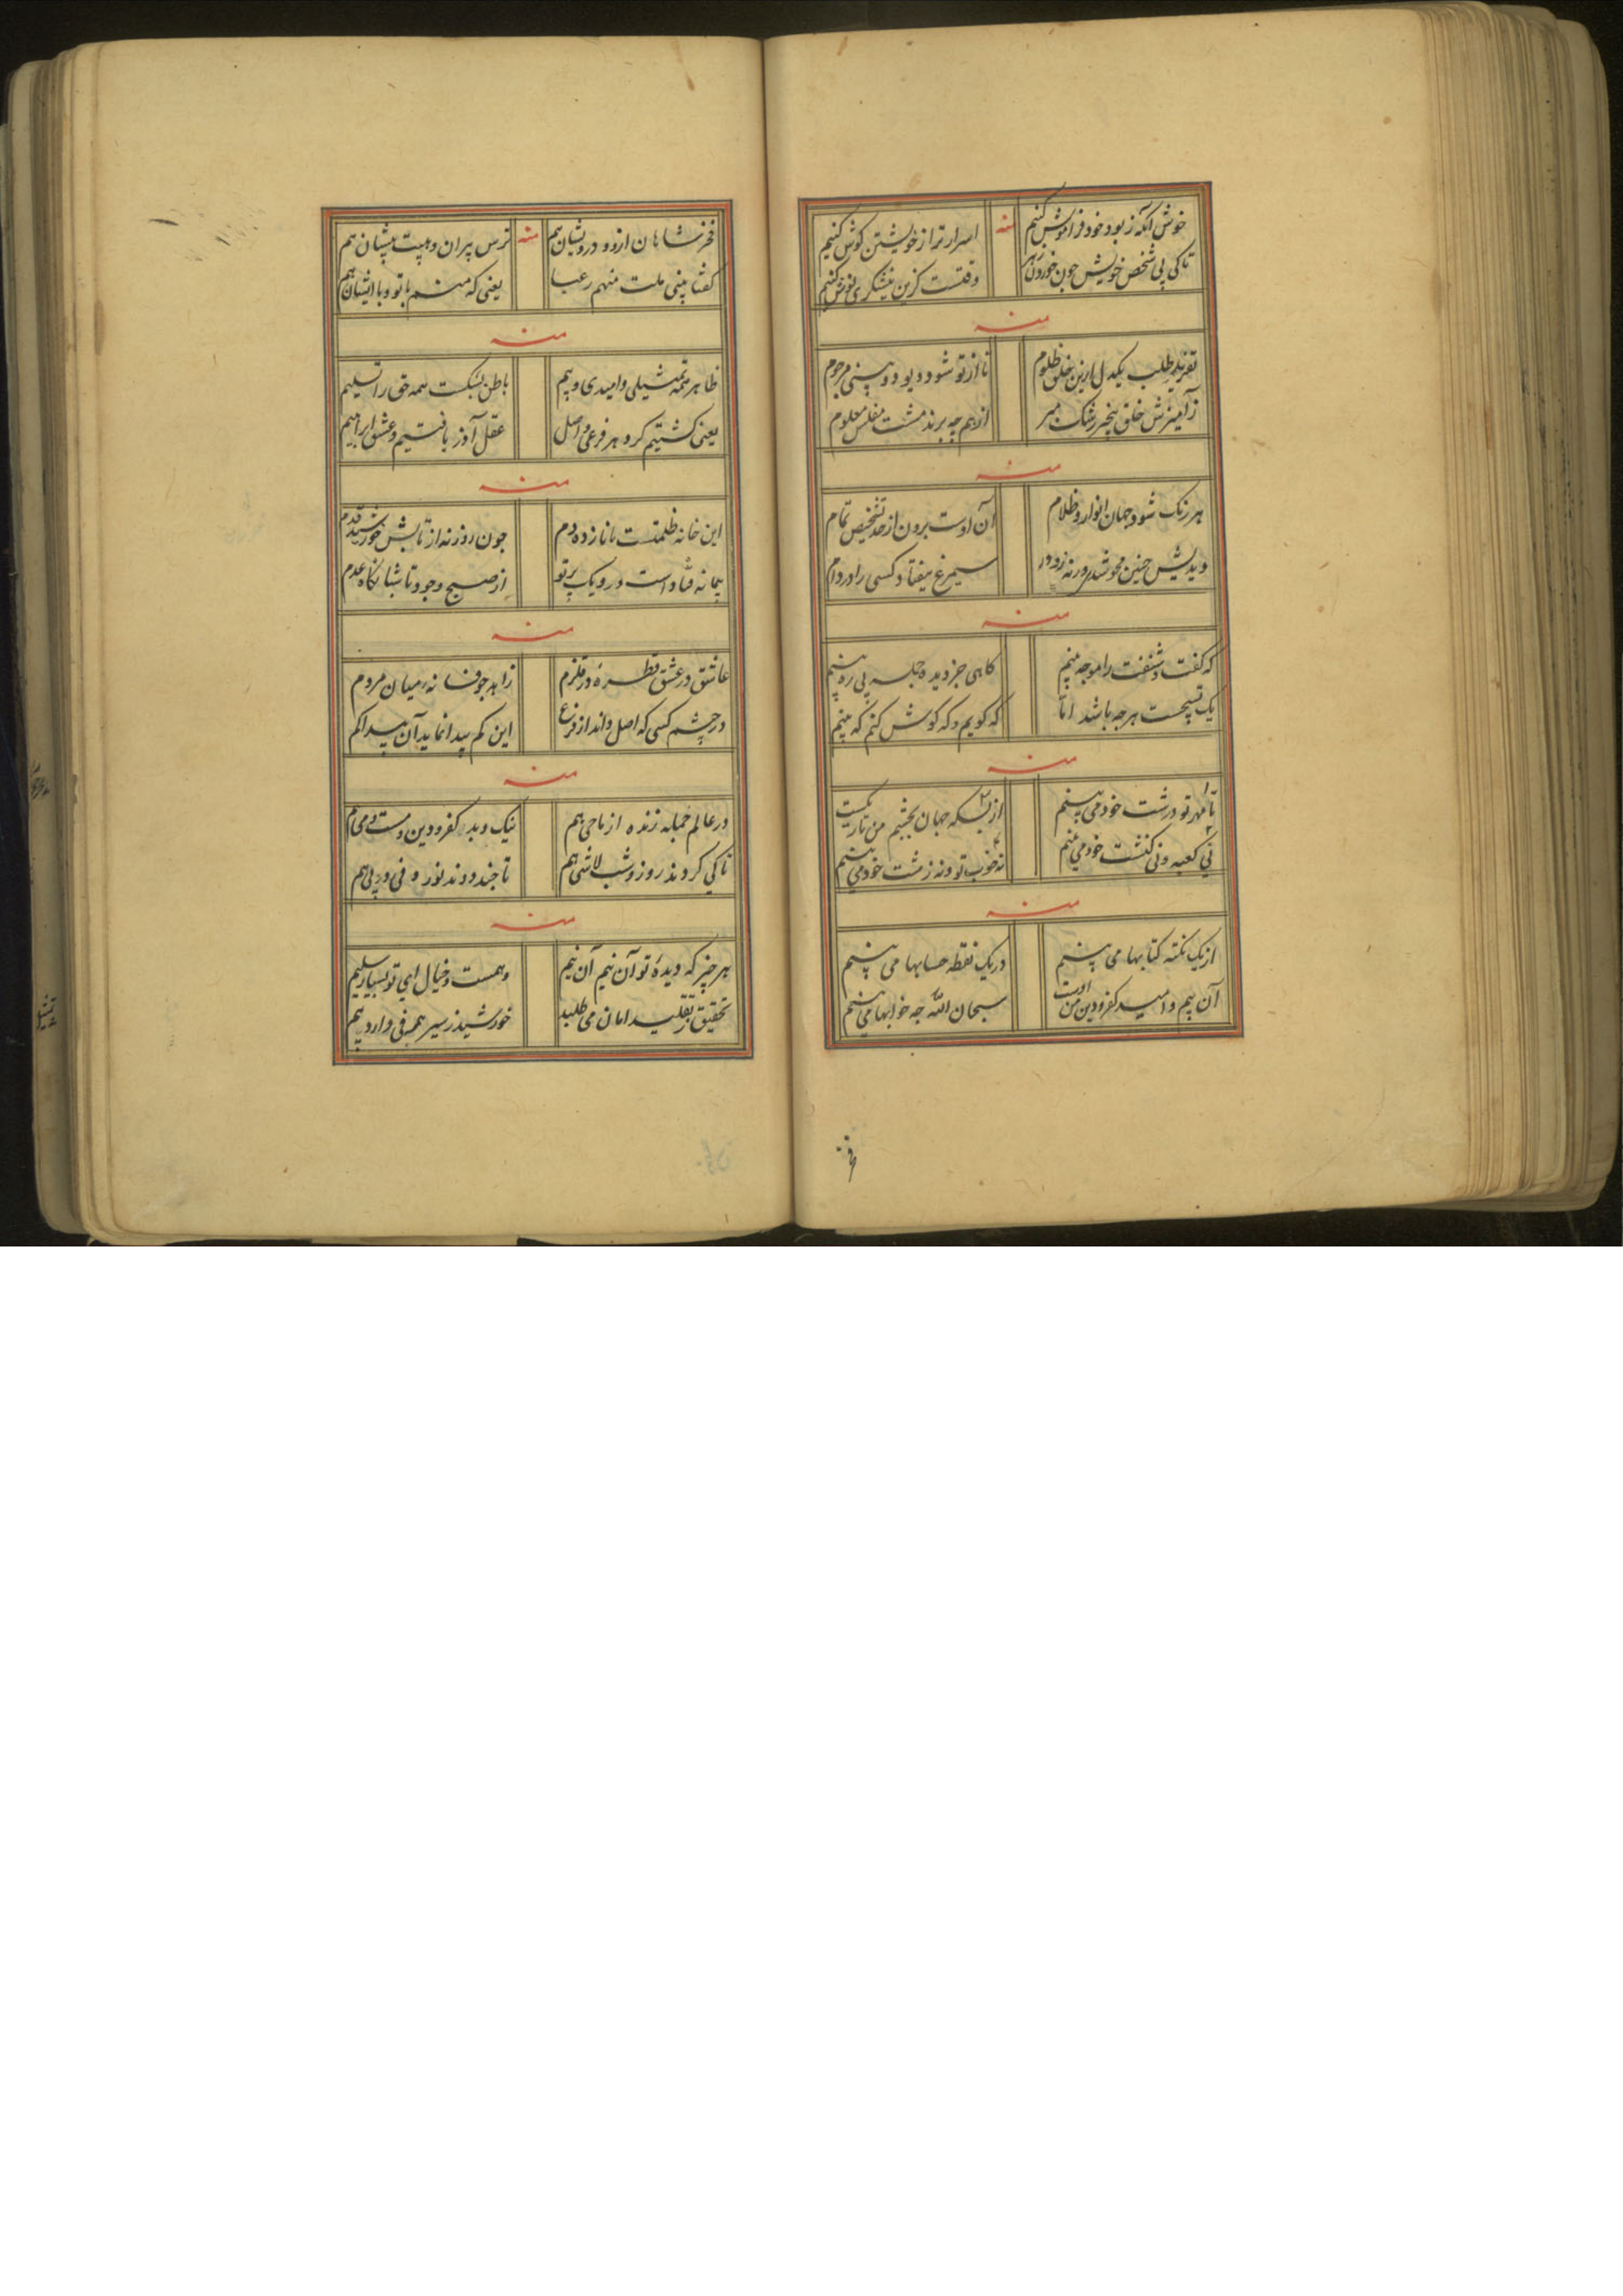 خوش آنکه ز بود خود فراموش کنیم منه اسرار ترا از خویشتن گوش کنیم
تا کی پی شخص خویش چون خوردن زهر وقتست کزین نیشکری نوش کنیم
منه
طلب یکدل ازین خلق ظلوم تا از تو شود دیو دو بینی مرجوم
ز آمیزش خلق بیخبر رشک مبر از هم چه برند مشت مفلس معلوم
منه
هر رنگ شود جهان انوار و ظلام آن اوست برون از حد تشخیص تمام
چنین محو شدی ورنه ز دور سیمرغ نیفتاد کسی را در دام
منه
که گفت و شنفت را موجه بینم گاهی جز دیده و جمله بی ره بینم
یک نیست هرچه باشد اما که گویم و که گوش کنم که بینم
منه
تا مهر تو در سرشت خود می بینم از بسکه جهان بچشم من تاریکست
نی کعبه و نی کنشت خود می بینم نه خوب تو و نه زشت خود می بینم
منه
از یک نکته کتابها می بینم در یک نقطه حسابها می بینم
آن بیم و امید کفر و دین من اوست سبحان الله چه خوابها می بینم
فخر
فخر شاهان ازو و درویشان هم منه ترس پیران و هیبت پیشان هم
گفتا بینی ملت منهم رعبا یعنی که منم با تو و با ایشان هم
منه
ظاهر همه تمثیلی و امیدی و بیم باطن بشکست همه حق را تسلیم
یعنی گشتیم گرد هر فرعی و اصل عقل آزر یافتیم و عشق ابراهیم
منه
این خانه ظلمتست تا نازده دم چون روزنه از تابش خورشید قدم
پیمانه فتاد است در و یک پرتو از صبح وجود تا شبانگاه عدم
منه
عاشق در عشق قطرهٔ در قلزم زاهد چو فسانهٔ میان مردم
در چشم کسی که اصل داند از فرع این کم پیدا نماید آن پیدا کم
منه
در عالم جمله زنده از ماحی هم نیک و بد کفر و دین و مست و می هم
تا کی گردند روز و شب لاشی هم تا چند دوند نور و فی در پی هم
منه
هر چیز که دیدهٔ تو آن نیم آن نیم وهمست و خیال ای تو بسیار سلیم
تحقیق بتقلید امان می طلبد خورشید ز سیر همرهی دارد بیم